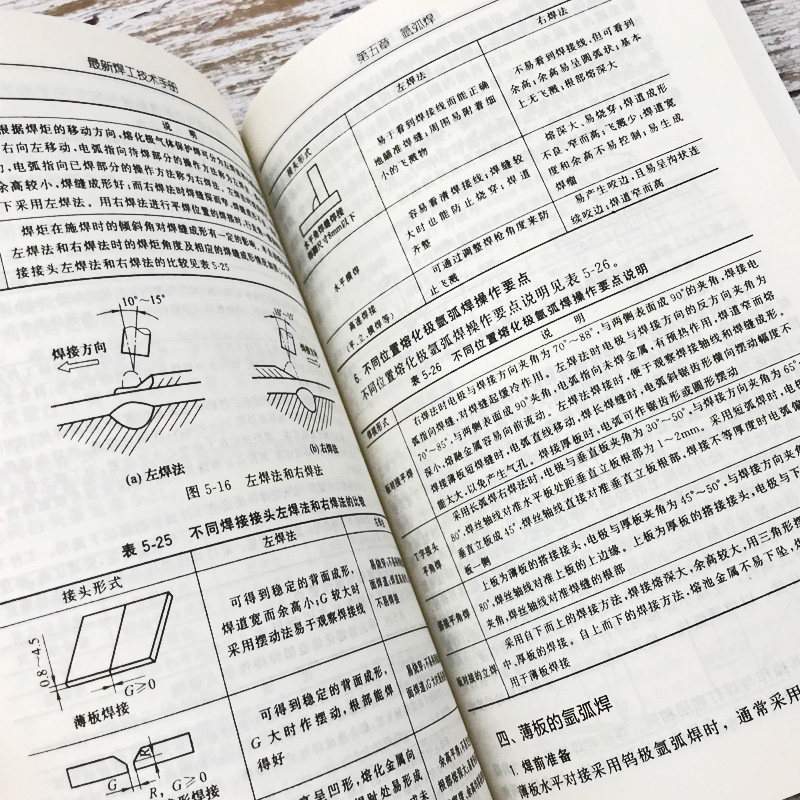 最新焊工技术手册
说 明
根据焊炬的移动方向,熔化极气体保护焊可分为左焊
右向左移动,电弧指向待焊部分的操作方法称为左焊法
电弧指向已焊部分的操作方法称为右焊法。左焊
余高较小,焊缝成形好;而右焊法时焊缝
下采用左焊法。用右焊法进行平焊位置的焊接时,行走
焊炬在施焊时的倾斜角对焊缝成形有一定的影响。
左焊法和右焊法时的焊炬角度及相应的焊缝成形
接接头左焊法和右焊法的比较见表5-25
10°~15°
10°~15°
焊接方向
焊接方向
(a) 左焊法
(b) 右焊法
图 5-16 左焊法和右焊法
表 5-25 不同焊接接头左焊法和右焊法的比较
接头形式
左焊法
0.8~4.5
G≥0
薄板焊接
可得到稳定的背面成形,
焊道宽而余高小;G较大时
采用摆动法易于观察焊接线
G
R, G≥0
可得到稳定的背面成形,
G大时作摆动,根部能焊
得好
呈凹形,熔化金属向
第五章 氩弧焊
接头形式
左焊法
右焊法
水平角焊缝焊接
焊脚尺寸8mm以下
易于看到焊接线而能正确
地瞄准焊缝;周围易附着细
小的飞溅物
不易看到焊接线,但可看到
余高;余高易呈圆弧状;基本
上无飞溅;根部熔深大
水平横焊
容易看清焊接线;焊缝较
大时也能防止烧穿;焊道
齐整
熔深大、易烧穿;焊道成形
不良、窄而高;飞溅少;焊道宽
度和余高不易控制;易生成
焊瘤
高速焊接
(平、立、横焊等)
可通过调整焊枪角度来防
止飞溅
易产生咬边,且易呈沟状连
续咬边;焊道窄而高
6. 不同位置熔化极氩弧焊操作要点
不同位置熔化极氩弧焊操作要点说明见表 5-26。
表 5-26 不同位置熔化极氩弧焊操作要点说明
焊接形式
说 明
板对接平焊
右焊法时电极与焊接方向夹角为70°~88°,与两侧表面成90°的夹角,焊接电
弧指向焊缝,对焊缝起缓冷作用。左焊法时电极与焊接方向的反方向夹角为
70°~85°,与两侧表面成90°夹角,电弧指向未焊金属,有预热作用,焊道窄而熔
深小,熔融金属容易向前流动。左焊法焊接时,便于观察焊接轴线和焊缝成形。
焊接薄板短焊缝时,电弧直线移动,焊长焊缝时,电弧斜锯齿形横向摆动幅度不
能太大,以免产生气孔。焊接厚板时,电弧可作锯齿形或圆形摆动
T字接头
平角焊
采用长弧焊右焊法时,电极与垂直板夹角为30°~50°,与焊接方向夹角为65°~
80°,焊丝轴线对准水平板处距垂直立板根部为1~2mm。采用短弧焊时,电极与
垂直立板成45°,焊丝轴线直接对准垂直立板根部,焊接不等厚度时电弧偏
板一侧
搭接平角焊
上板为薄板的搭接接头,电极与厚板夹角为45°~50°,与焊接方向夹
80°,焊丝轴线对准上板的上边缘。上板为厚板的搭接接头,电极与下
夹角,焊丝轴线对准焊缝的根部
板对接的立焊
采用自下而上的焊接方法,焊接熔深大,余高较大,用三角形摆
中、厚板的焊接。自上而下的焊接方法,熔池金属不易下坠,焊
用于薄板焊接
四、薄板的氩弧焊
1. 焊前准备
薄板水平对接采用钨极氩弧焊时,通常采用